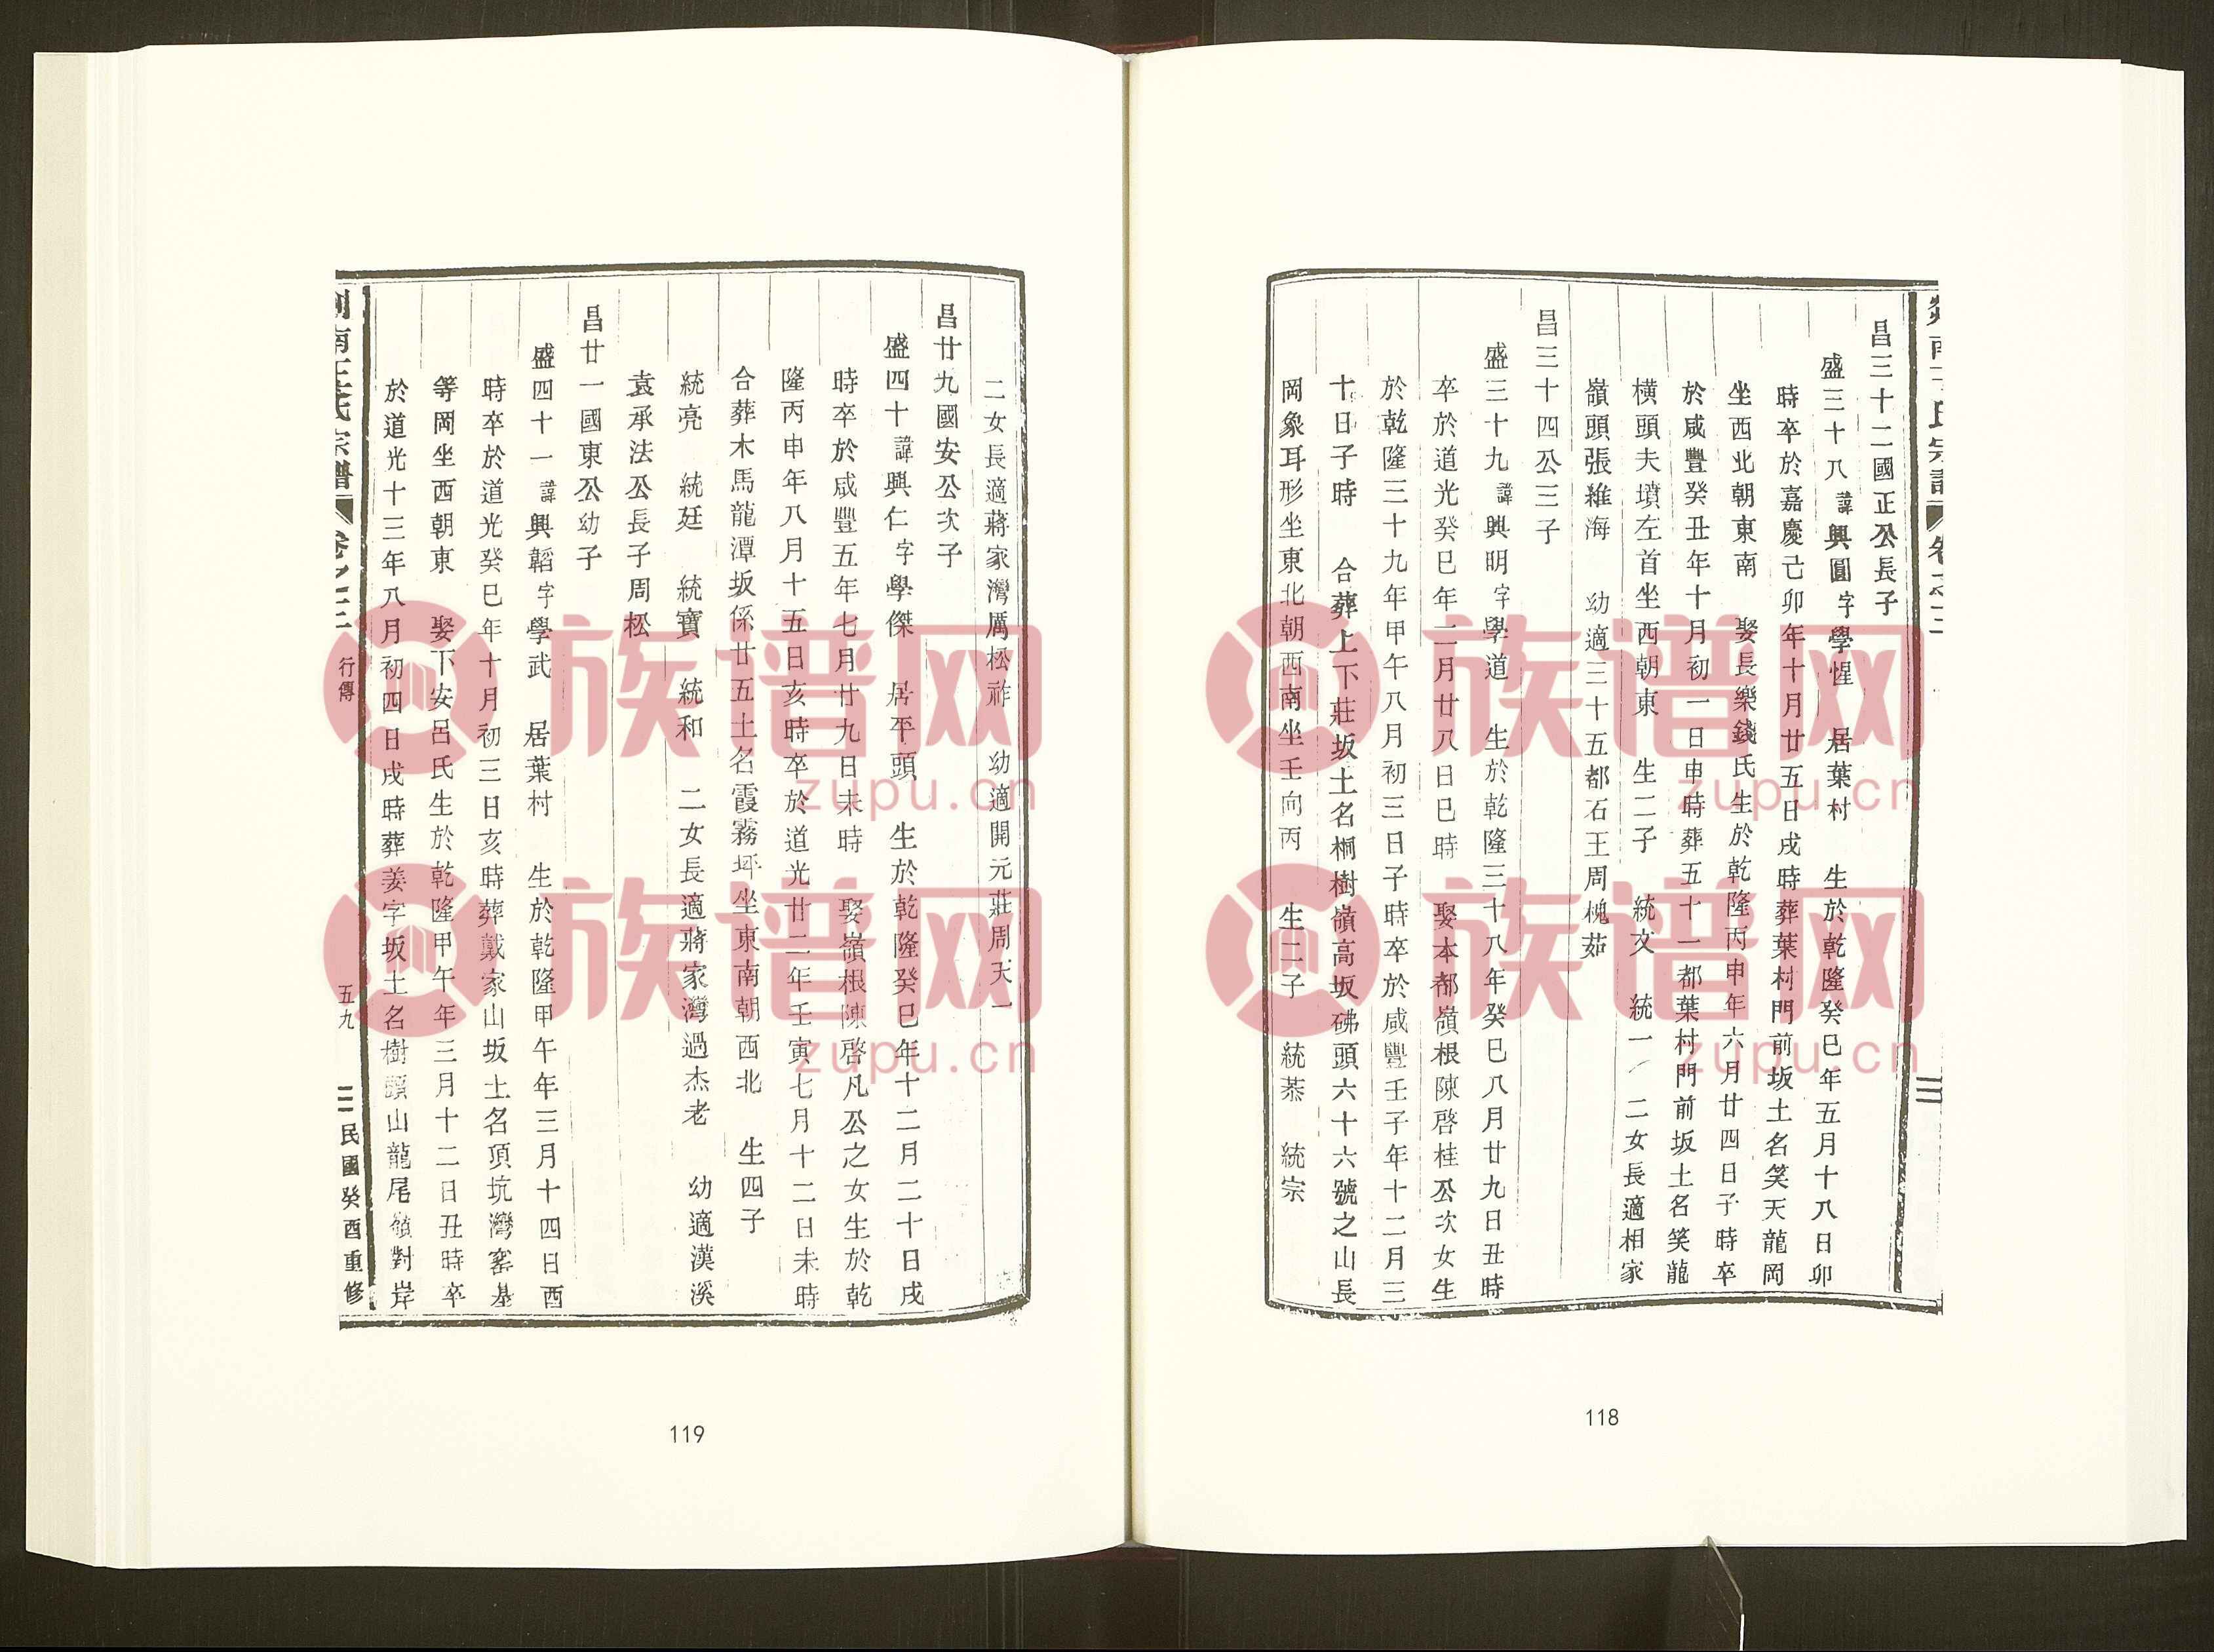 昌三十二國正公長子
盛三十八諱興圓字學惺 居葉村 生於乾隆癸巳年五月十八日卯
時卒於嘉慶己卯年十月廿五日戌時葬葉村門前坂土名笑天龍岡
坐西北朝東南 娶長樂錢氏生於乾隆丙申年六月廿四日子時卒
於咸豐癸丑年十月初一日申時葬五十一都葉村門前坂土名笑龍
橫頭夫墳左首坐西朝東 生二子 統文 統一 二女長適相家
嶺頭張維海 幼適三十五都石王周槐茹
昌三十四公三子
盛三十九諱興明字學道 生於乾隆三十八年癸巳八月廿九日丑時
卒於道光癸巳年二月廿八日巳時 娶本都嶺根陳啓桂公次女生
於乾隆三十九年甲午八月初三日子時卒於咸豐壬子年十二月三
十日子時 合葬上下莊坂土名桐樹嶺高坂砩頭六十六號之山長
岡象耳形坐東北朝西南坐壬向丙 生二子 統恭 統宗
118
二女長適蔣家灣厲松祚 幼適開元莊周天一
昌廿九國安公次子
盛四十諱興仁字學傑 居平頭 生於乾隆癸巳年十二月二十日戌
時卒於咸豐五年七月廿九日未時 娶嶺根陳啓凡公之女生於乾
隆丙申年八月十五日亥時卒於道光廿二年壬寅七月十二日未時
合葬木馬龍潭坂係廿五土名霞霧坪坐東南朝西北 生四子
統亮 統廷 統寶 統和 二女長適蔣家灣過杰老 幼適漢溪
袁承法公長子周松
昌廿一國東公幼子
盛四十一諱興韜字學武 居葉村 生於乾隆甲午年三月十四日酉
時卒於道光癸巳年十月初三日亥時葬戴家山坂土名項坑灣窰基
等岡坐西朝東 娶下安呂氏生於乾隆甲午年三月十二日丑時卒
於道光十三年八月初四日戌時葬姜字坂土名樹頭山龍尾嶺對岸
南王氏宗譜 卷之三 行傳 五九 三 民國癸酉重修
119
族谱网
zupu.cn
族谱网
zupu.cn
族谱网
zupu.cn
族谱网
zupu.cn